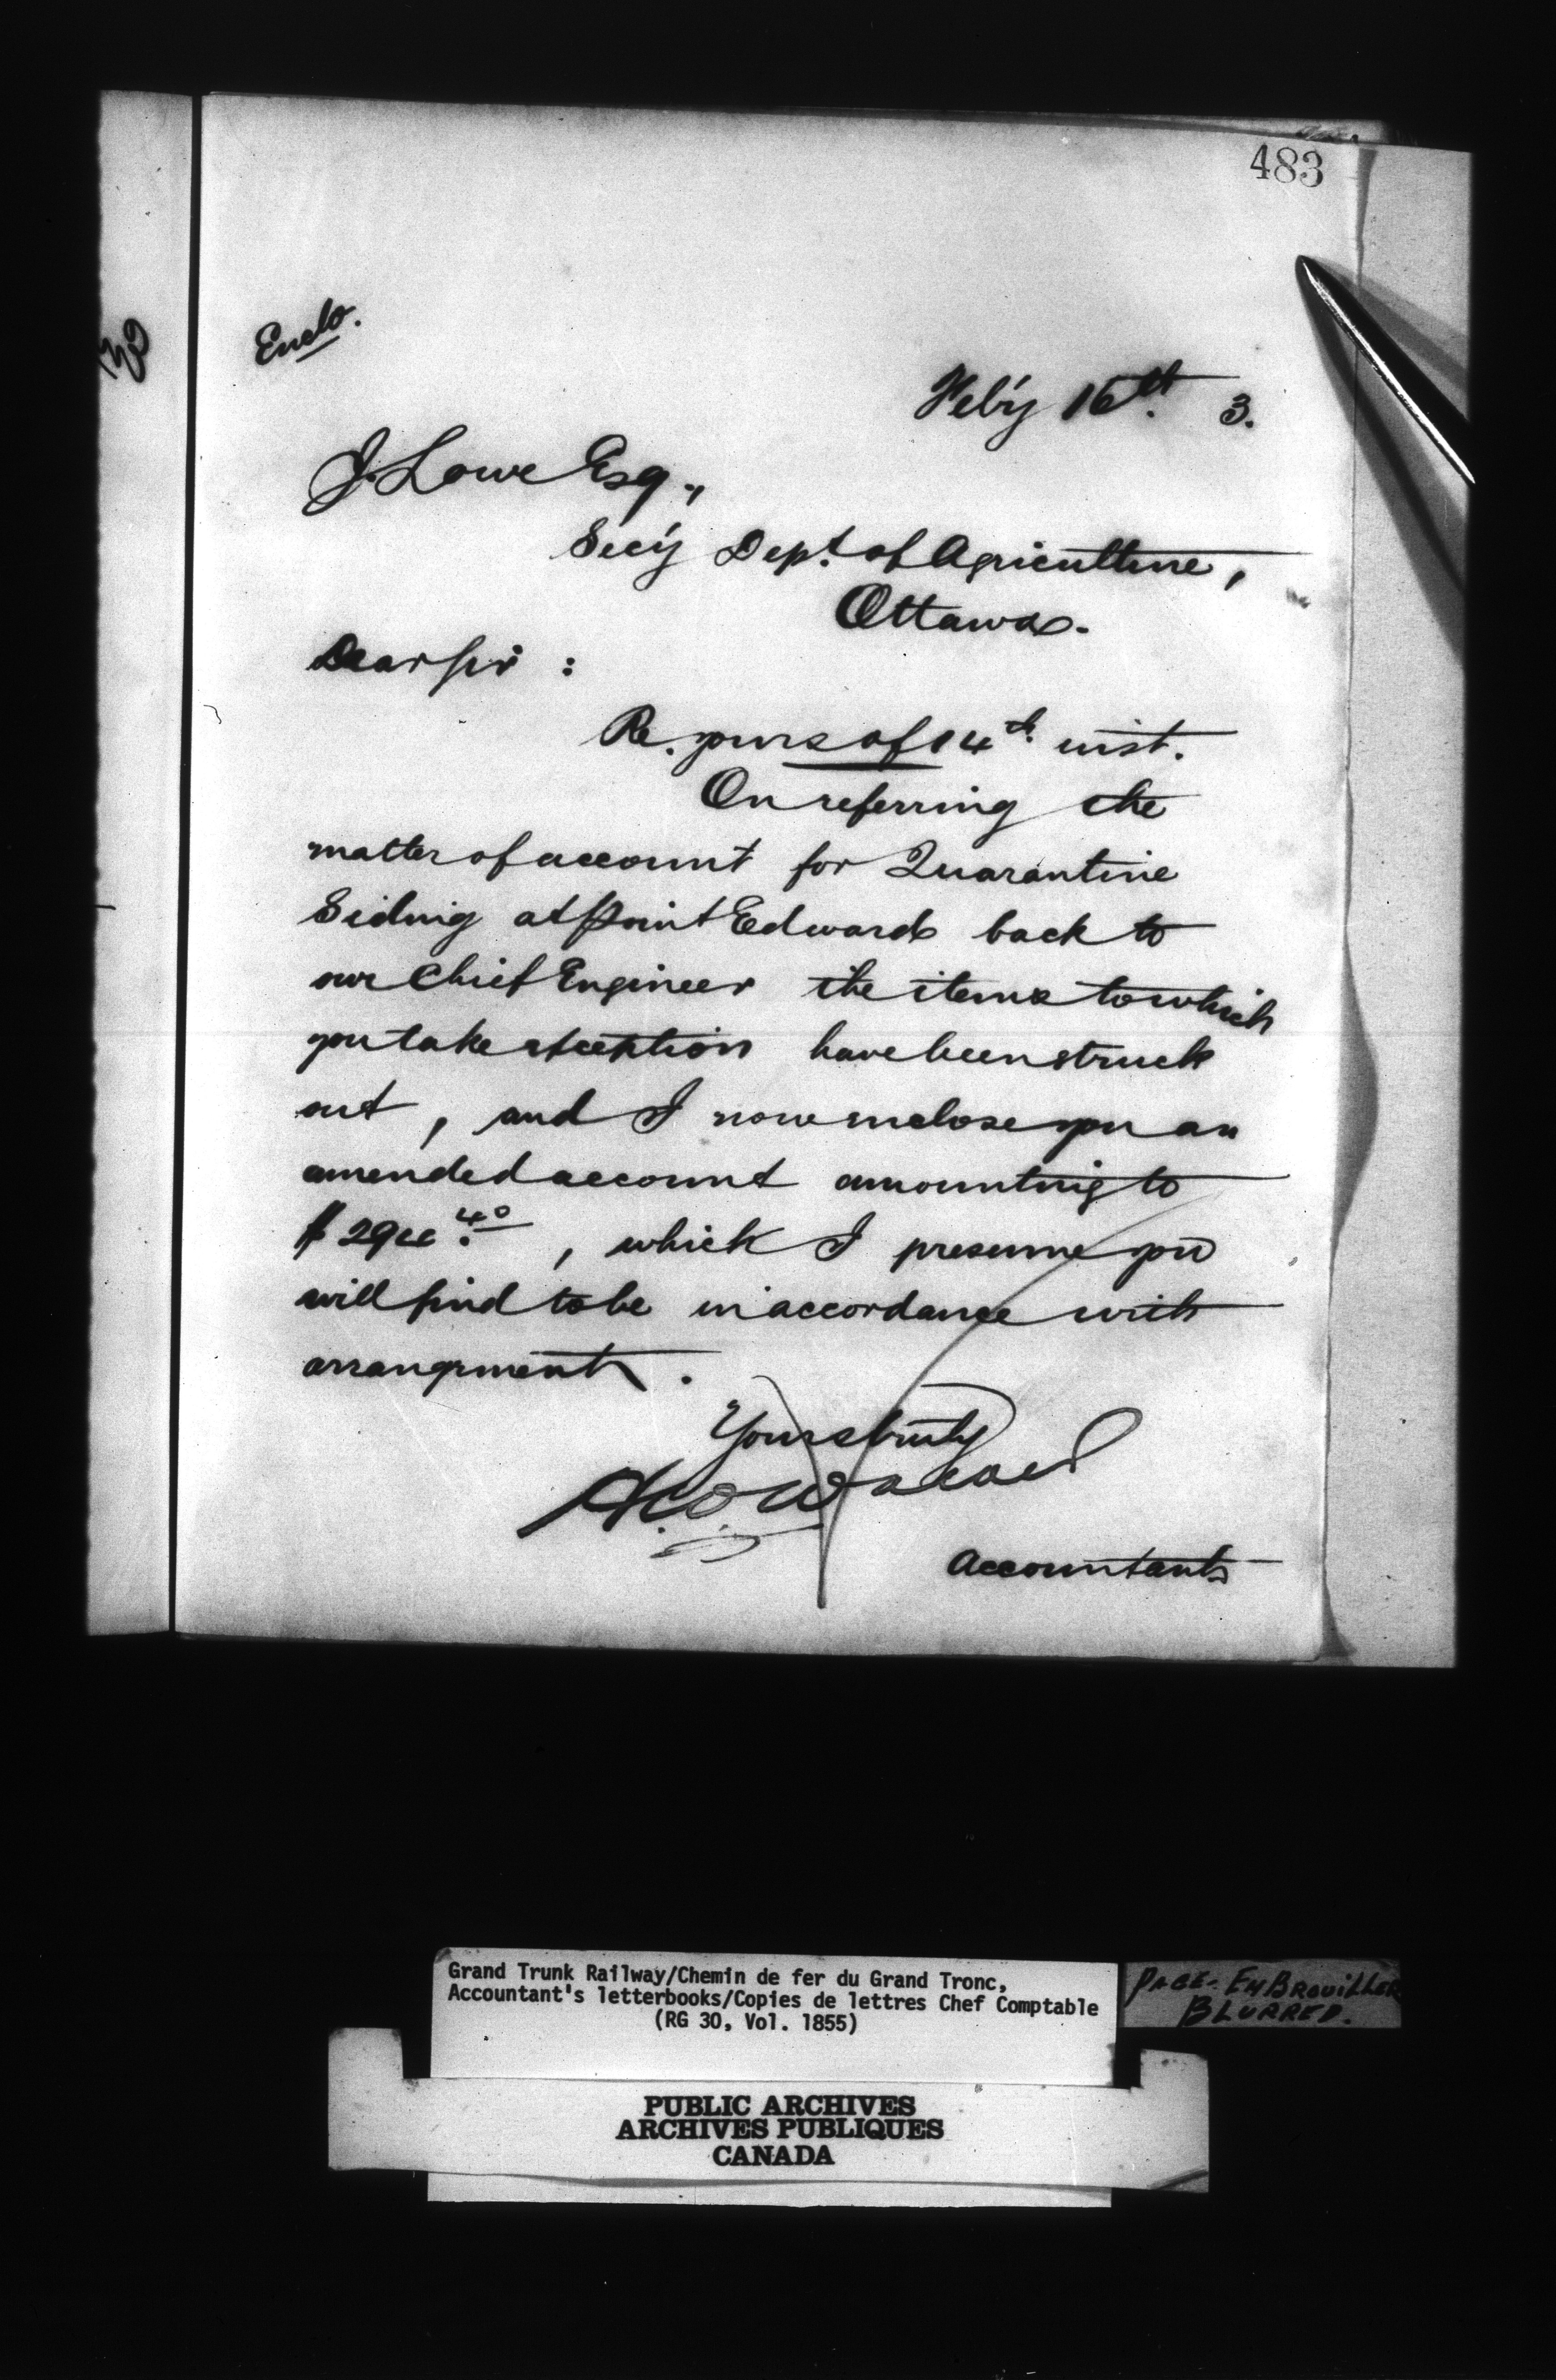 483
Enclo.
Feb'y 16th. 3.
J. Lowe Esq.,
Sec'y Dept. of Agriculture,
Ottawa.
Dear Sir :
Re. yours of 14th. inst.
On referring the
matter of account for Quarantine
Siding at Point Edward back to
our Chief Engineer the items to which
you take exception have been struck
out , and I now enclose you an
amended account amounting to
$ 294.40 , which I presume you
will find to be in accordance with
arrangement .
Yours truly
Accountant
Grand Trunk Railway/Chemin de fer du Grand Tronc,
Accountant's letterbooks/Copies de lettres Chef Comptable
(RG 30, Vol. 1855)
PAGE-EMBROUILLER
BLURRED.
PUBLIC ARCHIVES
ARCHIVES PUBLIQUES
CANADA